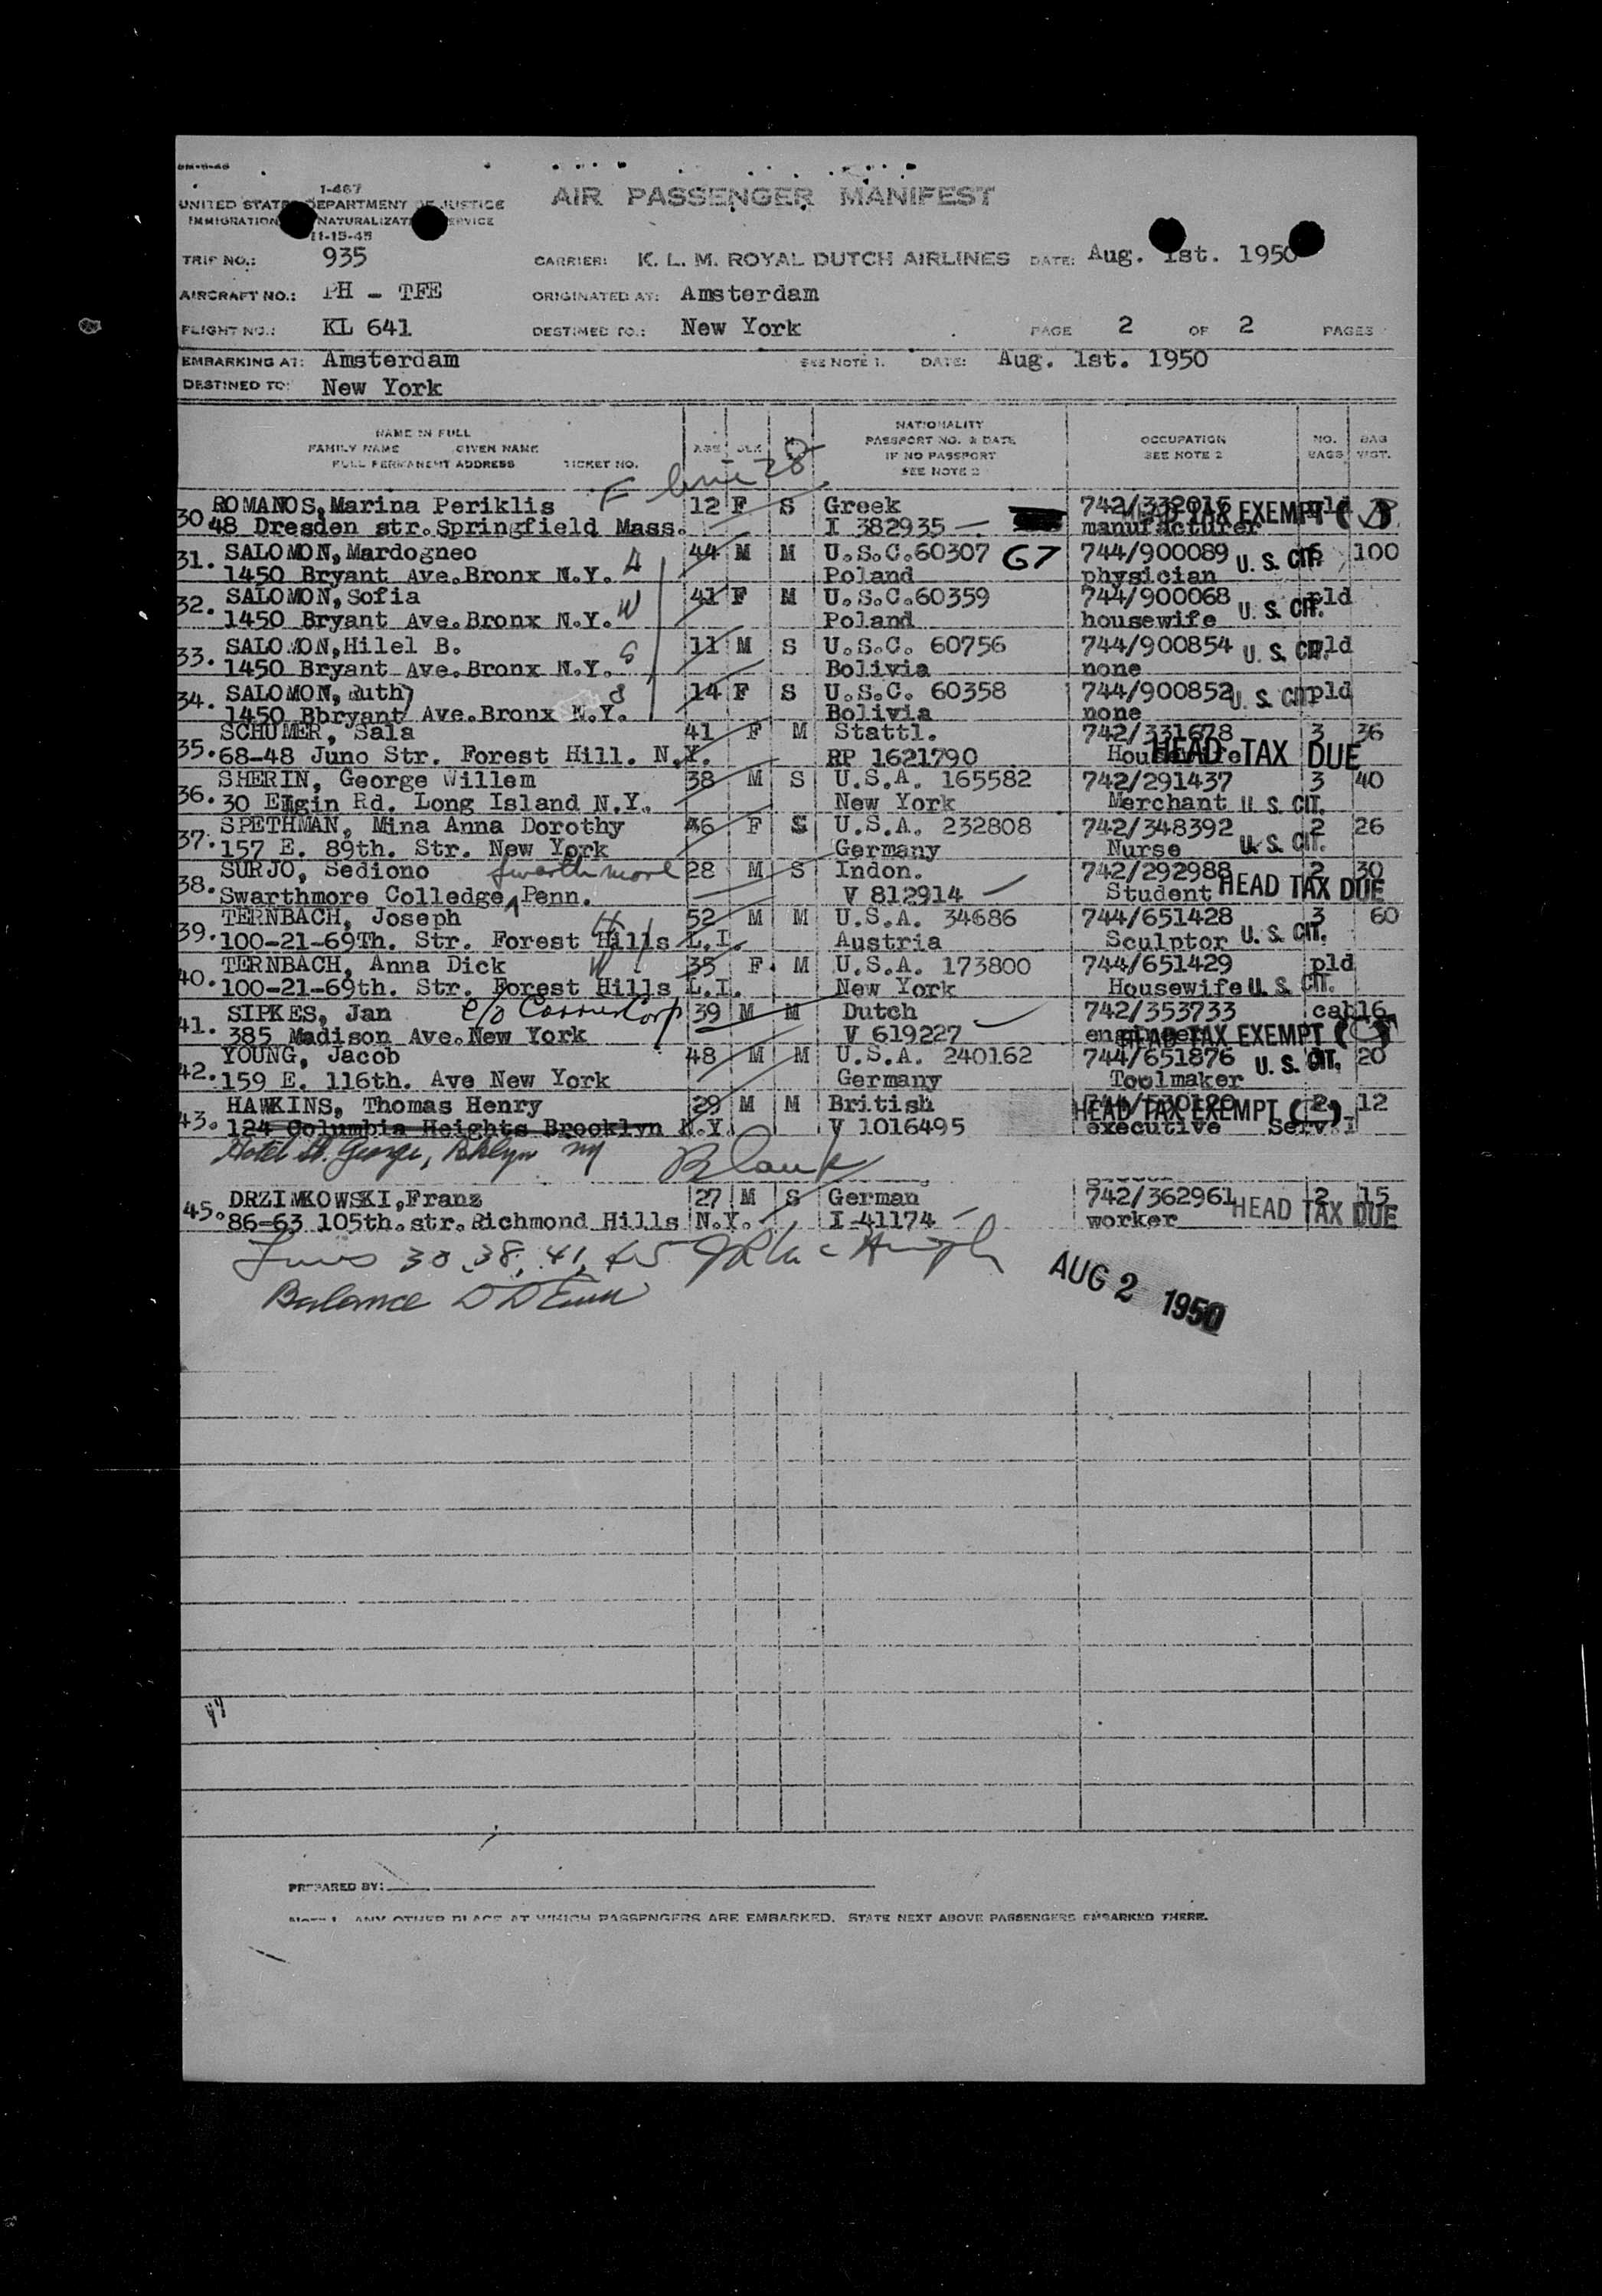 1-467
UNITED STATES DEPARTMENT OF JUSTICE
IMMIGRATION NATURALIZAT SERVICE
11-15-45
AIR PASSENGER MANIFEST
TRIP NO.: 935 CARRIER: K. L. M. ROYAL DUTCH AIRLINES DATE: Aug. 1st. 1950
AIRCRAFT NO.: PH - TFE ORIGINATED AT: Amsterdam
FLIGHT NO.: KL 641 DESTINED TO.: New York PAGE 2 OF 2 PAGES
EMBARKING AT: Amsterdam SEE NOTE 1. DATE: Aug. 1st. 1950
DESTINED TO: New York
NAME IN FULL
FAMILY NAME GIVEN NAME
FULL PERMANENT ADDRESS TICKET NO.
AGE SEX
NATIONALITY
PASSPORT NO. & DATE
IF NO PASSPORT
SEE NOTE 2
OCCUPATION
SEE NOTE 2
NO. BAGS
BAG WGT.
F line 28
30 ROMANOS, Marina Periklis 12 F S Greek 742/332015 pld
48 Dresden str. Springfield Mass. I 382935 manufacturer HEAD TAX EXEMPT
31. SALOMON, Mardogneo 44 M M U.S.C.60307 G7 744/900089 U. S. CIT. 6 100
1450 Bryant Ave. Bronx N.Y. Poland physician
32. SALOMON, Sofia 41 F M U.S.C.60359 744/900068 pld
1450 Bryant Ave. Bronx N.Y. W Poland housewife U. S. CIT.
33. SALOMON, Hilel B. 11 M S U.S.C. 60756 744/900854 U. S. CIT. pld
1450 Bryant Ave. Bronx N.Y. S Bolivia none
34. SALOMON, Ruth 14 F S U.S.C. 60358 744/900852 U. S. CIT. pld
1450 Bbryant Ave. Bronx N.Y. Bolivia none
35. SCHUMER, Sala 41 F M Stattl. 742/331678 3 36
68-48 Juno Str. Forest Hill. N.Y. RP 1621790 Housewife HEAD TAX DUE
36. SHERIN, George Willem 38 M S U.S.A. 165582 742/291437 3 40
30 Elmgin Rd. Long Island N.Y. New York Merchant U. S. CIT.
37. SPETHMAN, Mina Anna Dorothy 46 F S U.S.A. 232808 742/348392 2 26
157 E. 89th. Str. New York Germany Nurse U. S. CIT.
38. SURJO, Sediono Swarthmore 28 M S Indon. 742/292988 2 30
Swarthmore Colledge Penn. V 812914 Student HEAD TAX DUE
39. TERNBACH, Joseph 52 M M U.S.A. 34686 744/651428 3 60
100-21-69Th. Str. Forest Hills L.I. Austria Sculptor U. S. CIT.
40. TERNBACH, Anna Dick 35 F. M U.S.A. 173800 744/651429 pld
100-21-69th. Str. Forest Hills L.I. New York Housewife U. S. CIT.
41. SIPKES, Jan c/o Corp 39 M M Dutch 742/353733 cab 16
385 Madison Ave. New York V 619227 engineer HEAD TAX EXEMPT
42. YOUNG, Jacob 48 M M U.S.A. 240162 744/651876 U. S. CIT. 20
159 E. 116th. Ave New York Germany Toolmaker
43. HAWKINS, Thomas Henry 29 M M British HEAD TAX EXEMPT 2 12
124 Columbia Heights Brooklyn N.Y. V 1016495 executive Serv.
Hotel St. George, Bklyn NY Blank
45. DRZIMKOWSKI, Franz 27 M S German 742/362961 2 15
86-63 105th. str. Richmond Hills N.Y. I 41174 worker HEAD TAX DUE
Lines 30, 38, 41, 45
Balance
AUG 2 1950
PREPARED BY:
NOTE 1. ANY OTHER PLACE AT WHICH PASSENGERS ARE EMBARKED. STATE NEXT ABOVE PASSENGERS EMBARKED THERE.